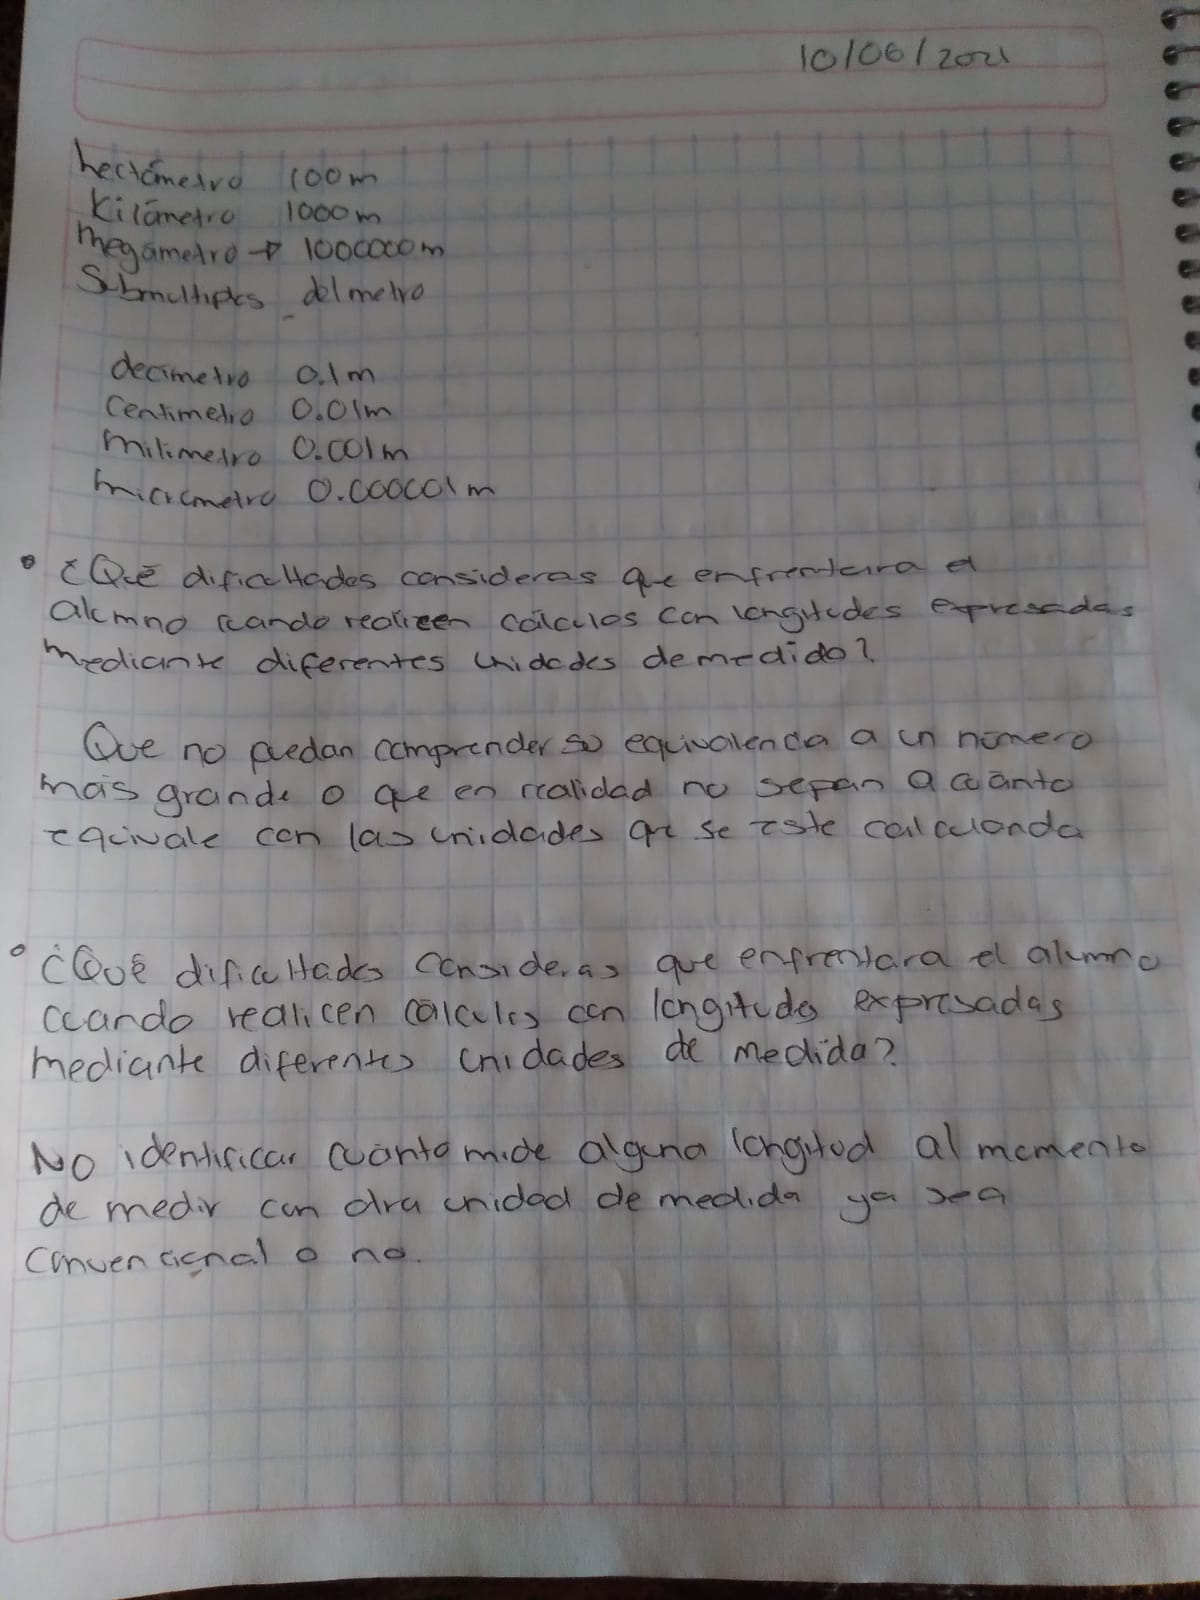 10/06/2021
hectómetro 100m
Kilómetro 1000m
Megámetro → 1000000m
Submultiplos del metro
decimetro 0.1m
Centimetro 0.01m
milimetro 0.001m
micrometro 0.000001m
• ¿Qué dificultades consideras que enfrentara el
alumno cuando realicen cálculos con longitudes expresadas
mediante diferentes unidades de medida?
Que no puedan comprender su equivalencia a un número
más grande o que en realidad no sepan a cuánto
equivale con las unidades que se este calculando
• ¿Qué dificultades consideras que enfrentara el alumno
cuando realicen cálculos con longitudes expresadas
mediante diferentes unidades de medida?
No identificar cuánto mide alguna longitud al momento
de medir con otra unidad de medida ya sea
convencional o no.